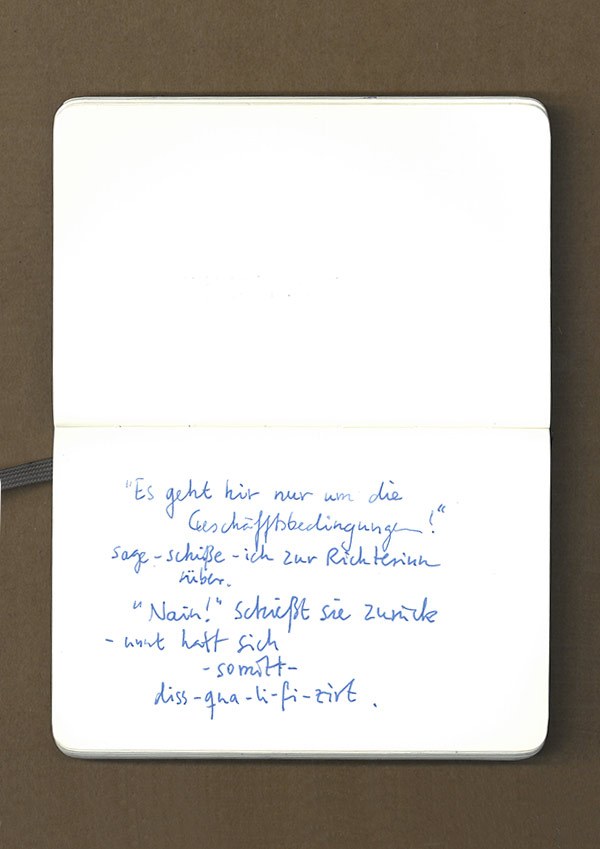 "Es geht hir nur um die
Geschäfftsbedingungen!"
sage-schiße-ich zur Richterinn
rüber.
"Nain!" schießt sie zurück
- unnt hatt sich
-somitt-
diss-qua-li-fi-zirt.